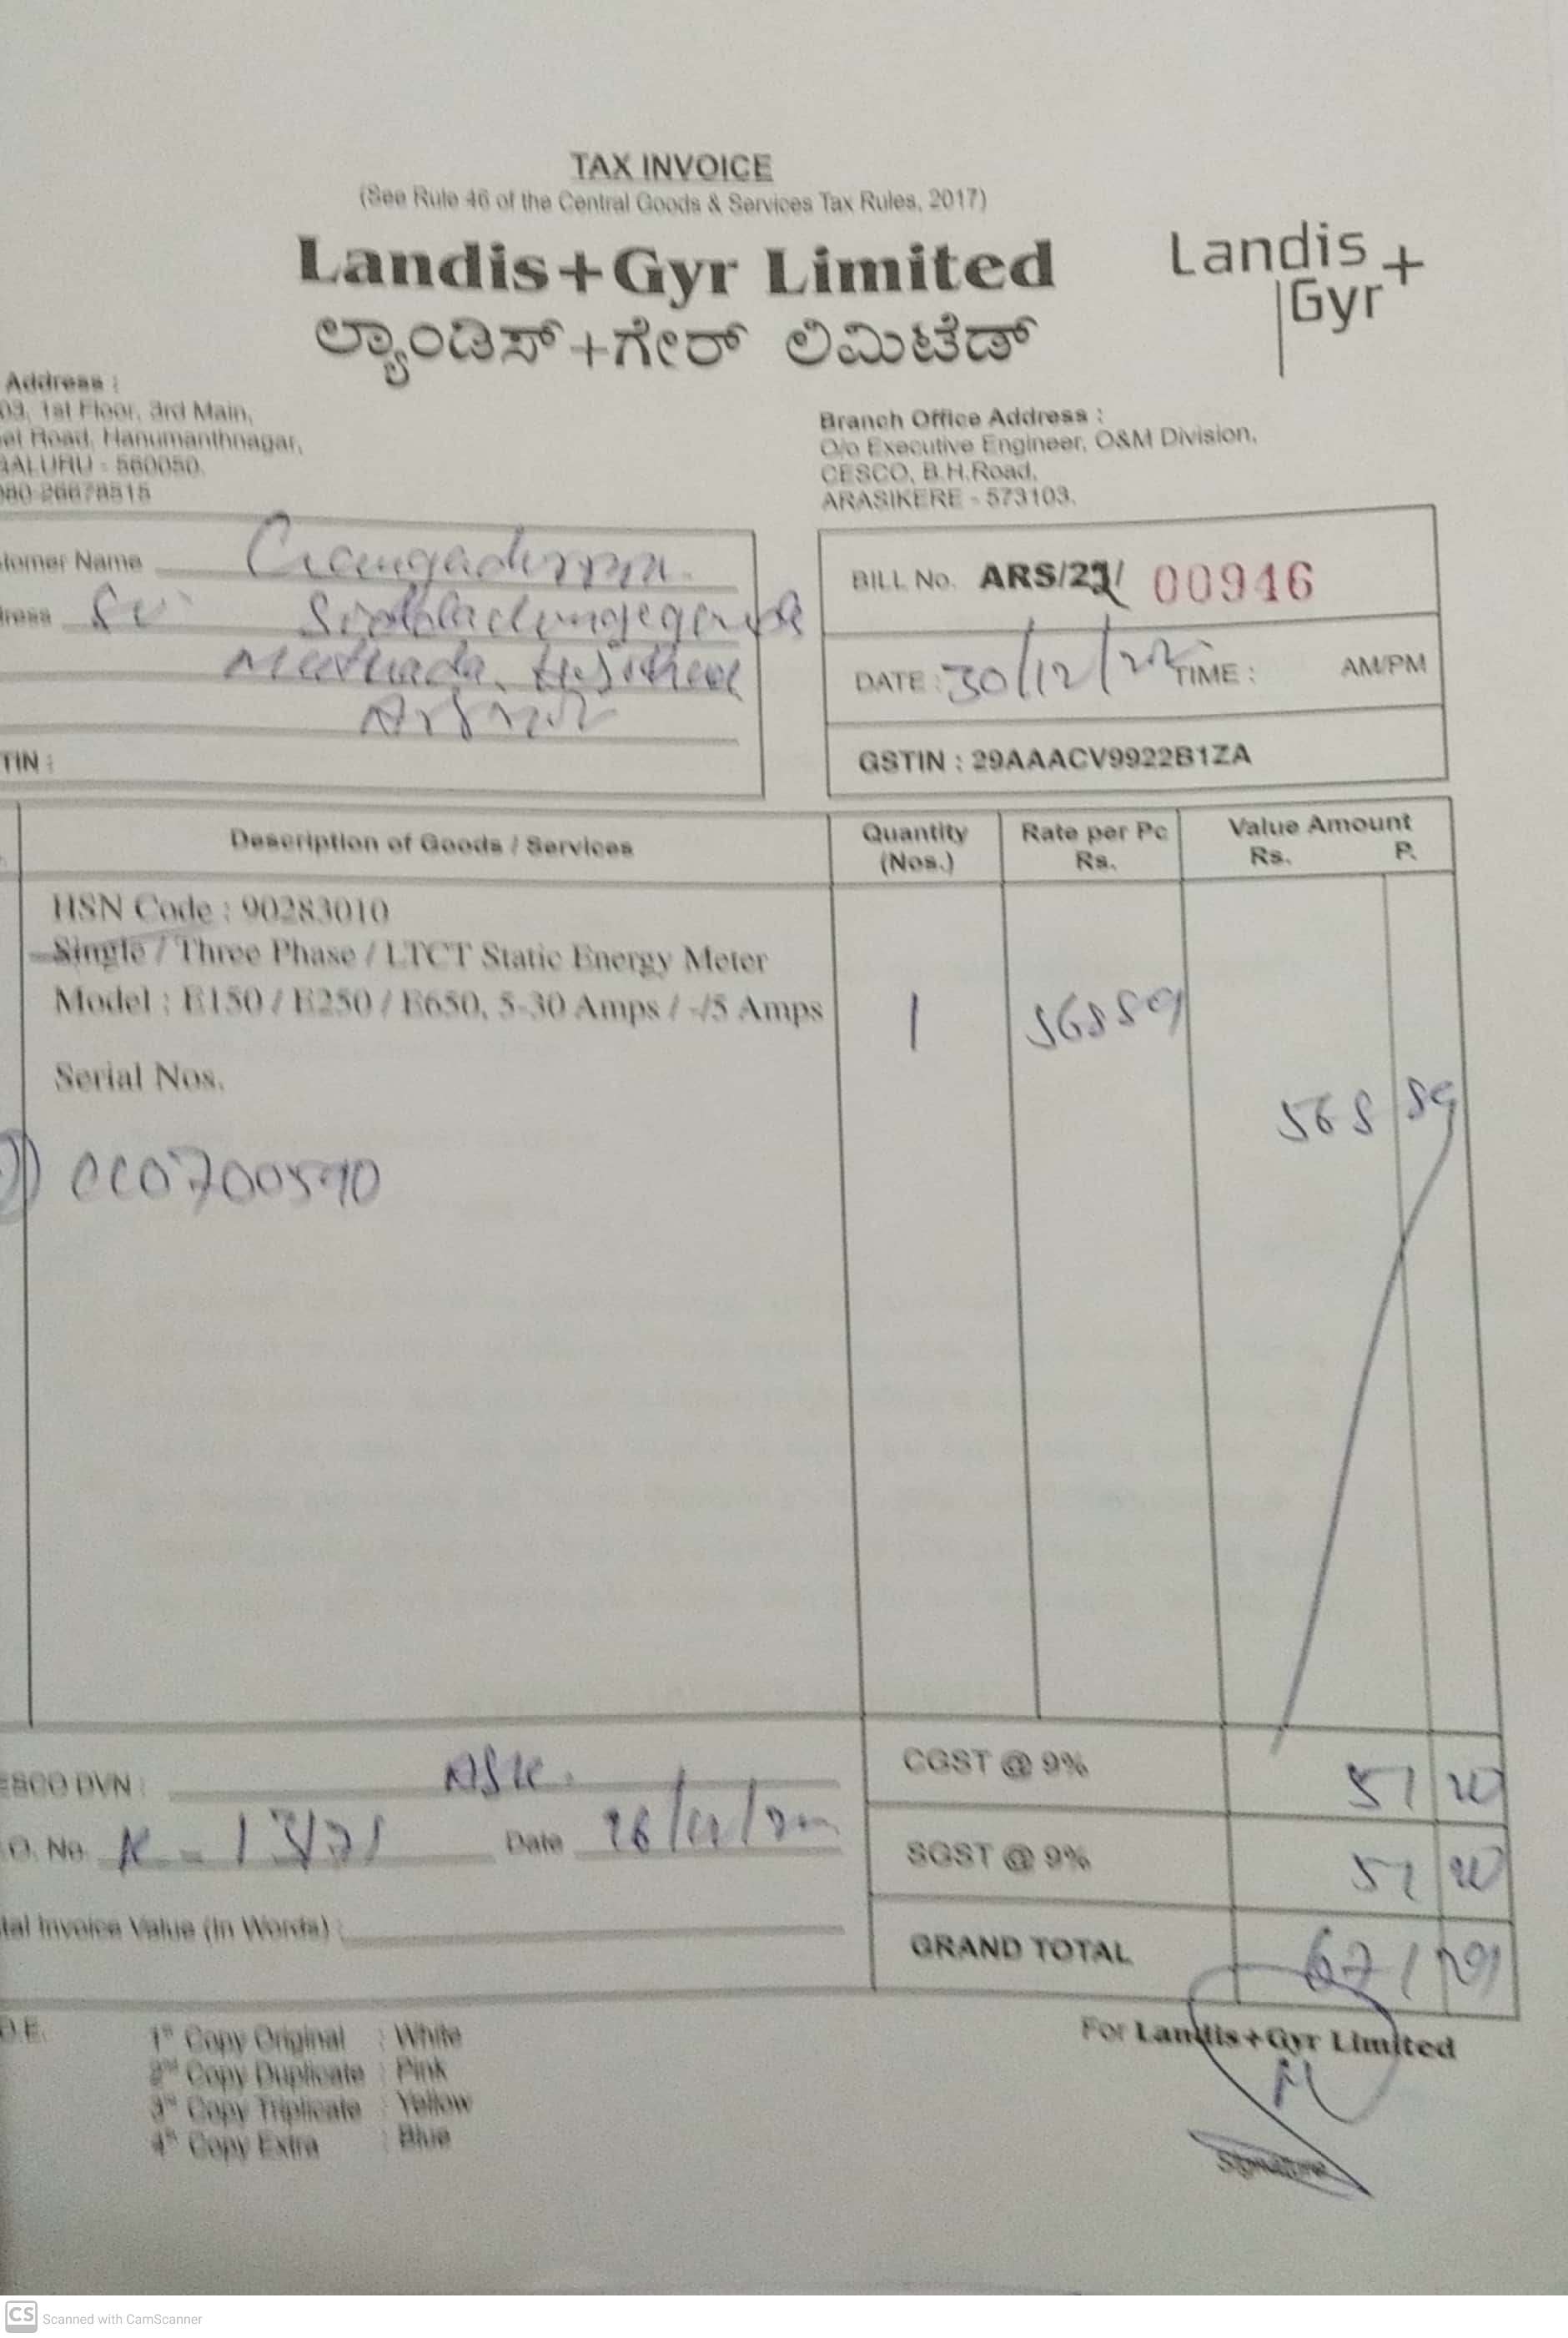 TAX INVOICE
(See Rule 46 of the Central Goods & Services Tax Rules, 2017)
Landis+Gyr Limited
ಲ್ಯಾಂಡಿಸ್+ಗೇರ್ ಲಿಮಿಟೆಡ್
Landis
Gyr+
Address :
03, 1st Floor, 3rd Main,
et Road, Hanumanthnagar,
GALURU - 560050.
080-26678515
Branch Office Address :
O/o Executive Engineer, O&M Division,
CESCO, B.H.Road,
ARASIKERE - 573103.
tomer Name
ress
TIN :
BILL No. ARS/22/ 00946
DATE : 30/12/22 TIME : AM/PM
GSTIN : 29AAACV9922B1ZA
Description of Goods / Services
Quantity (Nos.)
Rate per Pc Rs.
Value Amount Rs. P.
HSN Code : 90283010
Single / Three Phase / LTCT Static Energy Meter
Model : E150 / E250 / E650, 5-30 Amps / -/5 Amps
1 568 89
568 89
Serial Nos.
ESCO DVN : ASK
.O. No. Date
tal Invoice Value (In Words) :
CGST @ 9% 51 20
SGST @ 9% 51 20
GRAND TOTAL 671 29
O.E.
1st Copy Original : White
2nd Copy Duplicate : Pink
3rd Copy Triplicate : Yellow
4th Copy Extra : Blue
For Landis+Gyr Limited
Signature
CS Scanned with CamScanner